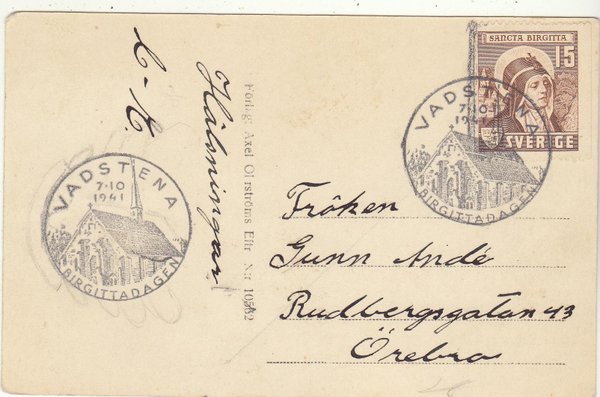 C-E.
Hälsningar
Förlag: Axel Ol rströms Eftr N:r 10562
VADSTENA
7·10
1941
BIRGITTADAGEN
SANCTA BIRGITTA
15
SVERIGE
VADSTENA
7·10
1941
BIRGITTADAGEN
Fröken
Gunn Andé
Rudbergsgatan 43
Örebro